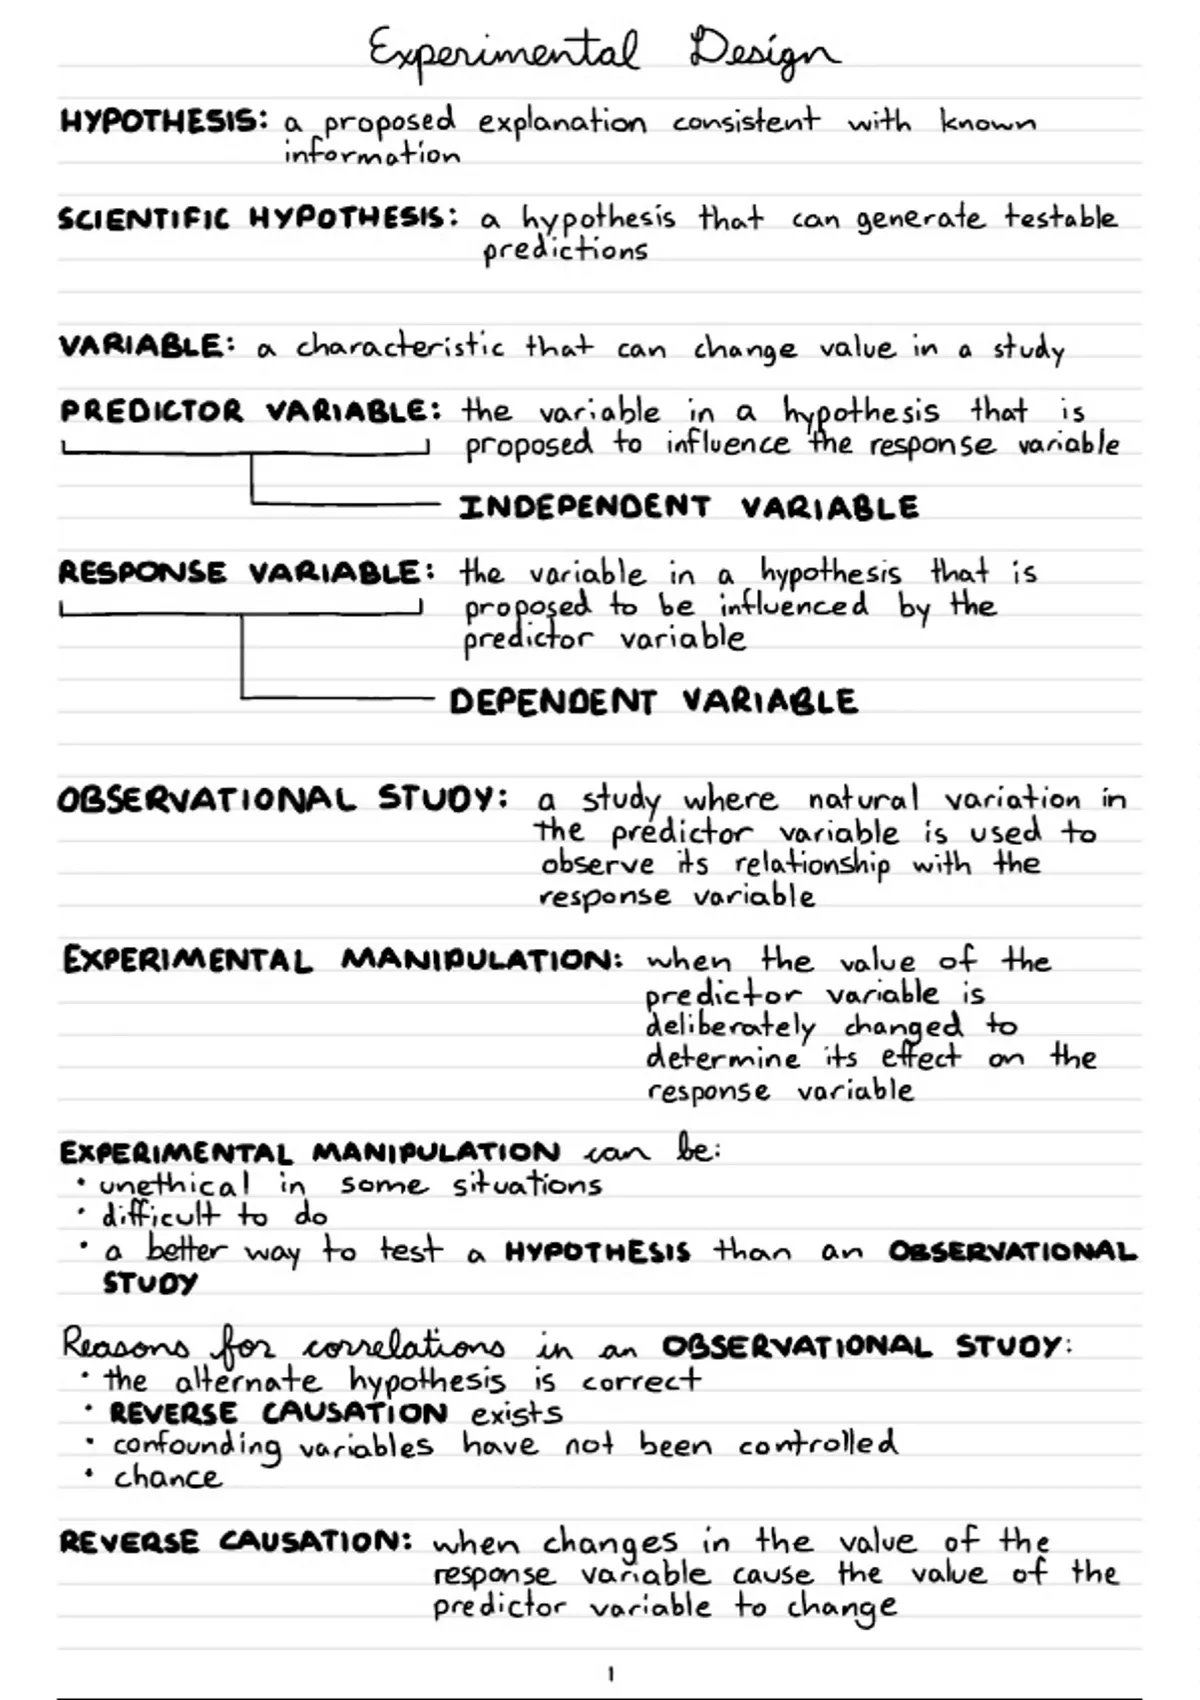 Experimental Design
HYPOTHESIS: a proposed explanation consistent with known
information
SCIENTIFIC HYPOTHESIS: a hypothesis that can generate testable
predictions
VARIABLE: a characteristic that can change value in a study
PREDICTOR VARIABLE: the variable in a hypothesis that is
proposed to influence the response variable
INDEPENDENT VARIABLE
RESPONSE VARIABLE: the variable in a hypothesis that is
proposed to be influenced by the
predictor variable
DEPENDENT VARIABLE
OBSERVATIONAL STUDY: a study where natural variation in
the predictor variable is used to
observe its relationship with the
response variable
EXPERIMENTAL MANIPULATION: when the value of the
predictor variable is
deliberately changed to
determine its effect on the
response variable
EXPERIMENTAL MANIPULATION can be:
• unethical in some situations
• difficult to do
• a better way to test a HYPOTHESIS than an OBSERVATIONAL
STUDY
Reasons for correlations in an OBSERVATIONAL STUDY:
• the alternate hypothesis is correct
• REVERSE CAUSATION exists
• confounding variables have not been controlled
• chance
REVERSE CAUSATION: when changes in the value of the
response variable cause the value of the
predictor variable to change
1